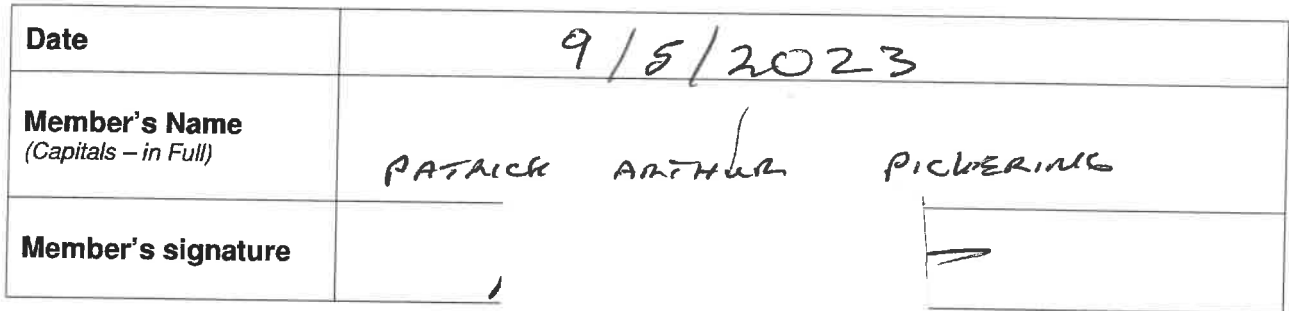 Date 9/5/2023
Member's Name
(Capitals – in Full)
PATRICK ARTHUR PICKERING
Member's signature